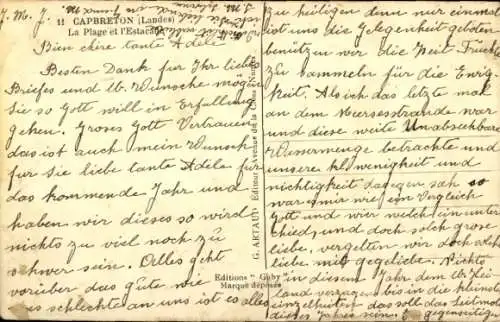 J. M. J.
11 CAPBRETON (Landes)
La Plage et l'Estacade
Bien chère tante Adela
Besten Dank für Ihr liebes
Briefes und lb. Wunsche mögen
Sie so Gott will in Erfüllung
gehen. Groses Gott Vertrauen
das ist auch mein Wunsch
für Sie liebe tante Adela für
das kommende Jahr und
haben wir dieses so wird
nichts zu viel noch zu
schwer sein. Alles geht
vorüber das gute wie
schlechte an uns ist es alles
G. ARTAUD Editeur Avenue de la
Editions "Gaby"
Marque déposée
zu heiligen denn nur einmal
ist uns die Gelegenheit geboten
benützen wir die Zeit Früchte
zu sammeln für die Ewig
keit. Als ich das letzte mal
an dem Meeresstrande war
und diese weite Unabsehbar
Wassermenge betrachte und
unsere Kleinigkeit und
nichtigkeit dagegen sah so
war es mir wie ein Vergleich
Gott und wir welch ein unter
schied, und doch solch grose
liebe, vergelten wir doch
liebe mit gegenliebe. Nichts
in diesem Jahr dem lb. Hei
land versagen bis in die kleinst
einzelheiten das soll das Leitmotiv
dieses Jahres sein. gegenseitigen